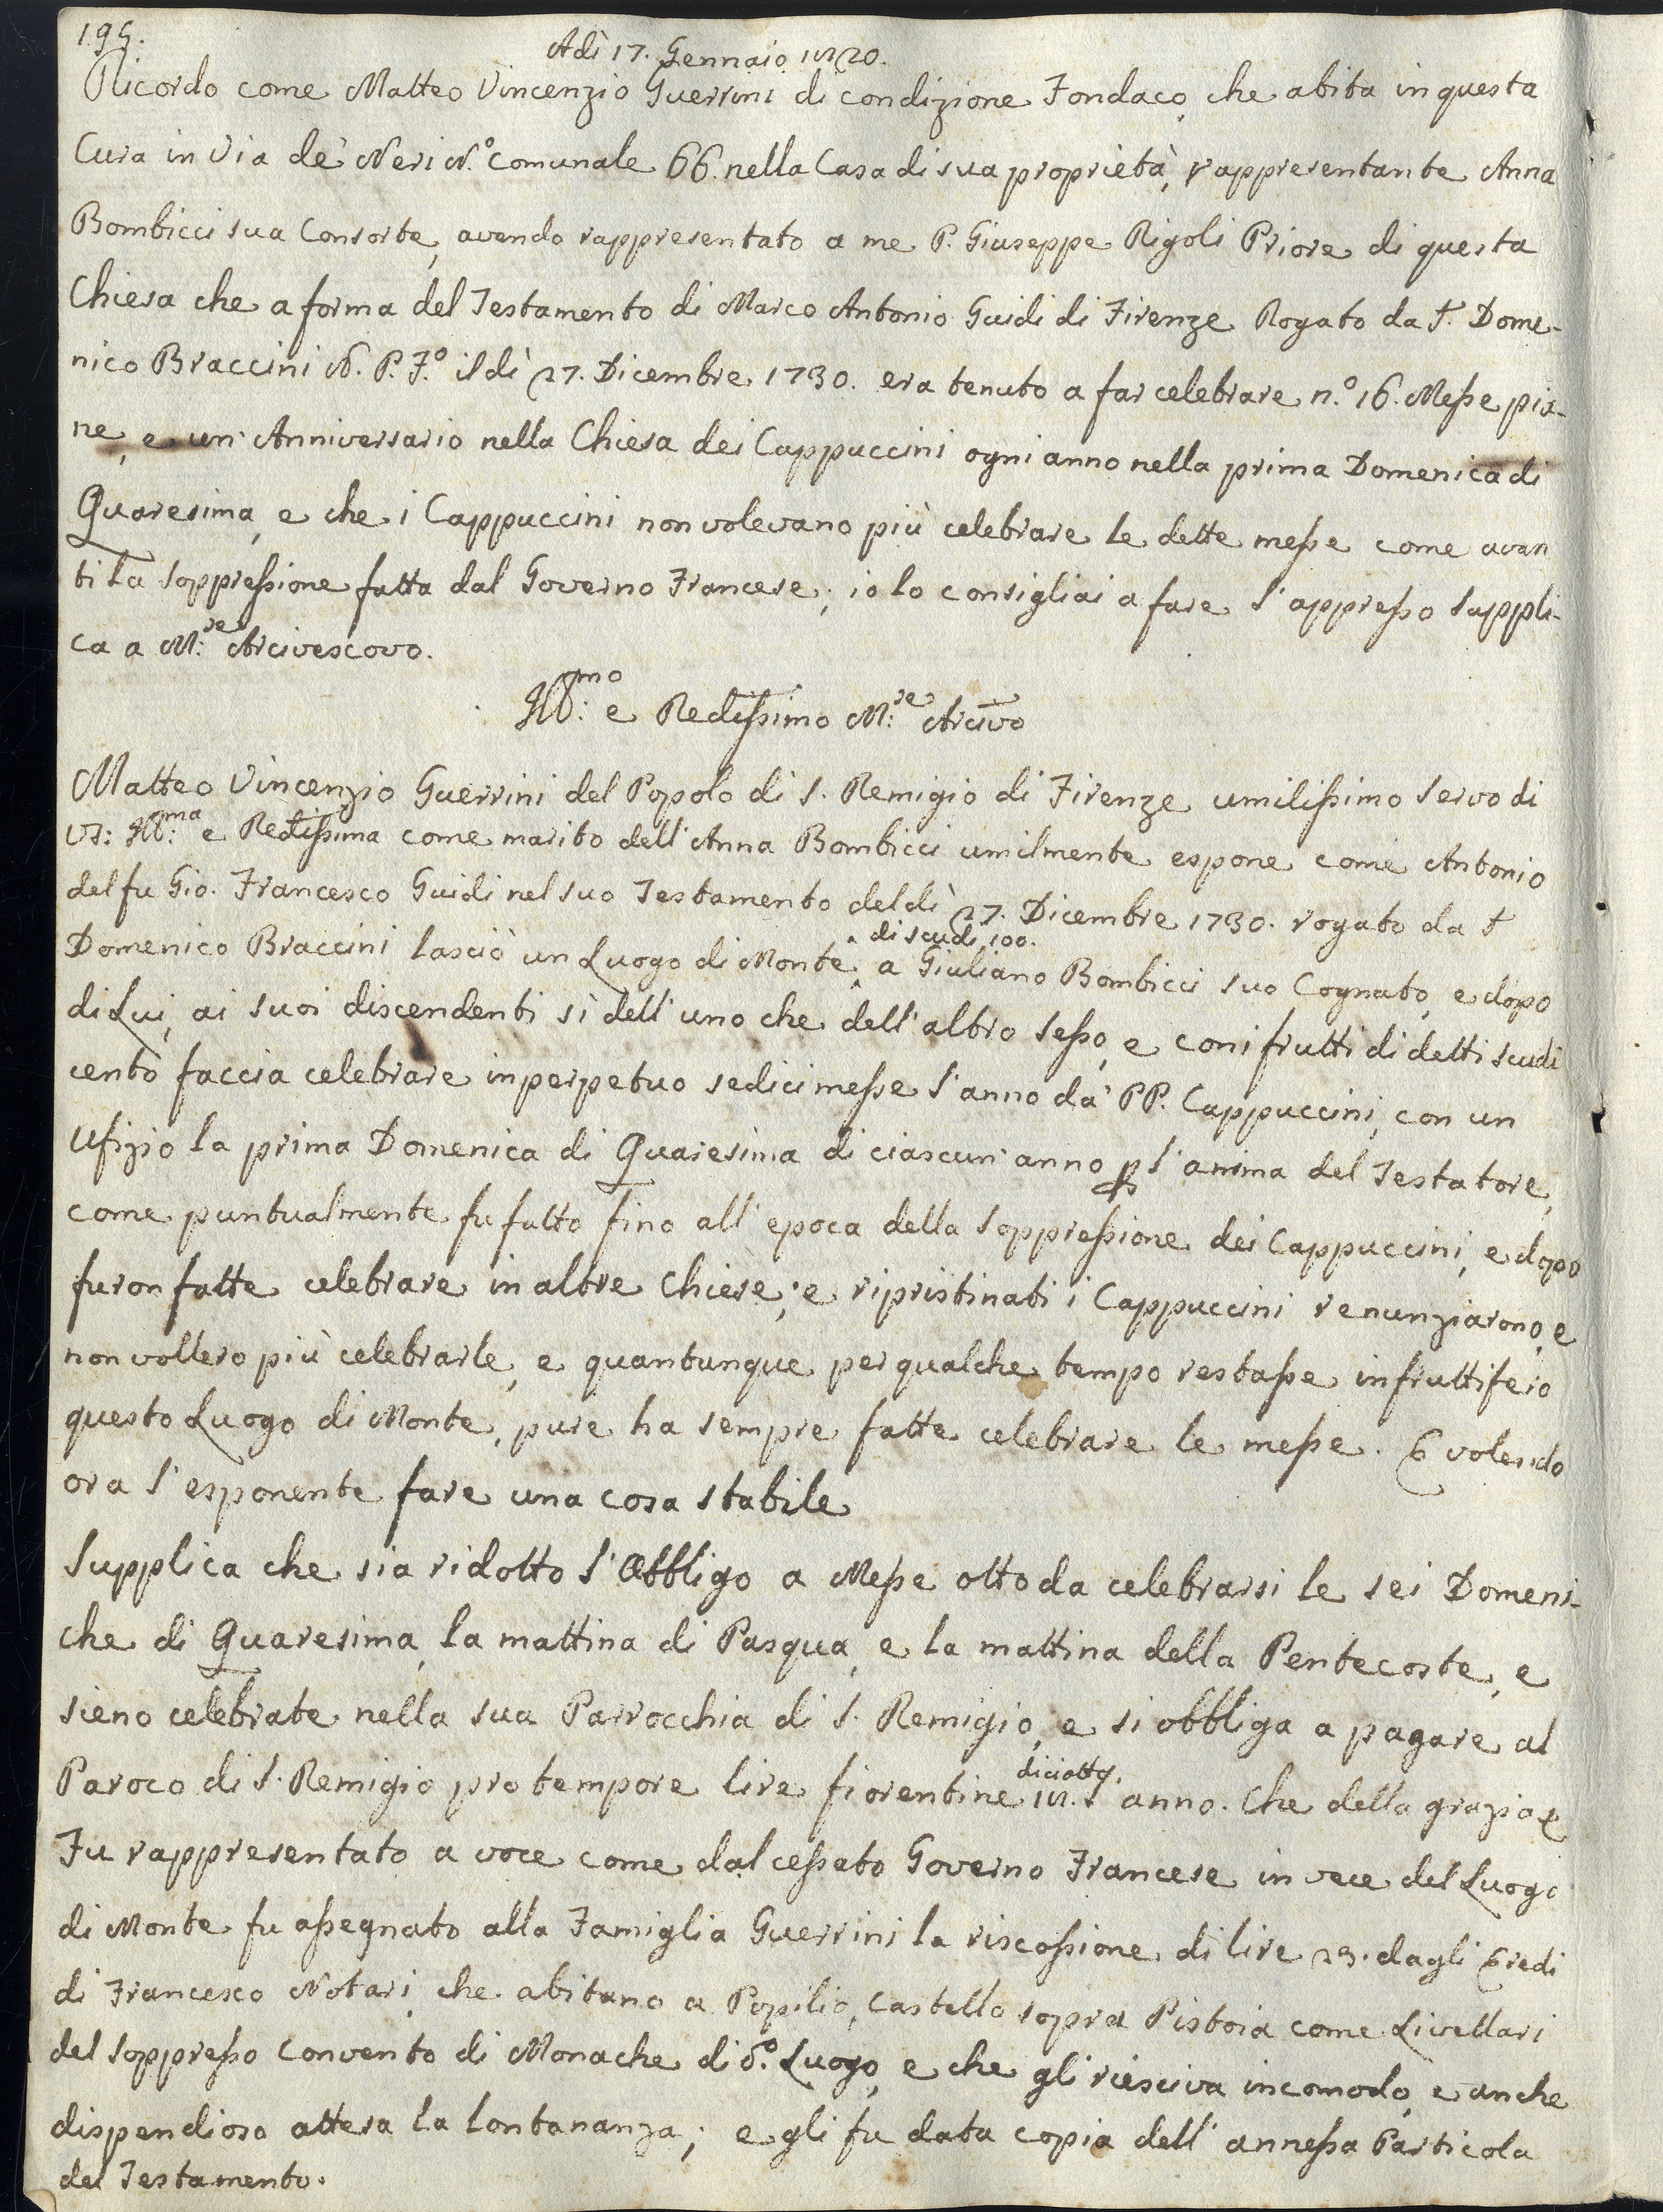 195.
Adì 17. Gennaio 1820.
Ricordo come Matteo Vincenzio Guerrini di condizione Fondaco, che abita in questa
Cura in Via de' Neri N.° comunale 66. nella Casa di sua proprietà, rappresentante Anna
Bombicci sua Consorte, avendo rappresentato a me P. Giuseppe Rigoli Priore di questa
Chiesa che a forma del Testamento di Marco Antonio Guidi di Firenze Rogato da S. Dome-
nico Braccini N. P. F.° il dì 27. Dicembre 1730. era tenuto a far celebrare n.° 16. Messe pia-
ne, e un' Anniversario nella Chiesa dei Cappuccini ogni anno nella prima Domenica di
Quaresima, e che i Cappuccini non volevano più celebrare le dette messe come avan
ti la soppressione fatta dal Governo Francese; io lo consigliai a fare l'appresso suppli-
ca a M:re Arcivescovo.
Ill:mo e Redissimo M:re Arcivo
Matteo Vincenzio Guerrini del Popolo di S. Remigio di Firenze umilissimo servo di
VS: Ill:ma e Redissima come marito dell'Anna Bombicci umilmente espone come Antonio
del fu Gio. Francesco Guidi nel suo Testamento del dì 27. Dicembre 1730. rogato da S
di scudi 100.
Domenico Braccini lasciò un Luogo di Monte a Giuliano Bombicci suo Cognato, e dopo
di Lui, ai suoi discendenti sì dell'uno che dell'altro sesso, e con i frutti di detti scudi
cento faccia celebrare in perpetuo sedici messe l'anno da' PP. Cappuccini, con un
Ufizio la prima Domenica di Quaresima di ciascun' anno p l'anima del Testatore,
come puntualmente fu fatto fino all'epoca della soppressione dei Cappuccini, e dopo
furon fatte celebrare in altre Chiese; e ripristinati i Cappuccini renunziarono, e
non vollero più celebrarle, e quantunque per qualche tempo restasse infruttifero
questo Luogo di Monte, pure ha sempre fatte celebrare le messe. E volendo
ora l'esponente fare una cosa stabile
Supplica che sia ridotto l'Obbligo a Messe otto da celebrarsi le sei Domeni-
che di Quaresima, la mattina di Pasqua, e la mattina della Pentecoste, e
sieno celebrate nella sua Parrocchia di S. Remigio, e si obbliga a pagare al
diciotto.
Paroco di S. Remigio pro tempore lire fiorentine 18. l'anno. Che della grazia &
Fu rappresentato a voce come dal cessato Governo Francese in vece del Luogo
di Monte fu assegnato alla Famiglia Guerrini la riscossione di lire 23. dagli Eredi
di Francesco Notari che abitano a Popilio, Castello sopra Pistoia come Livellari
del soppresso Convento di Monache di d.° Luogo, e che gli riesciva incomodo, e anche
dispendioso attesa la lontananza; e gli fu data copia dell' annessa Particola
del Testamento.